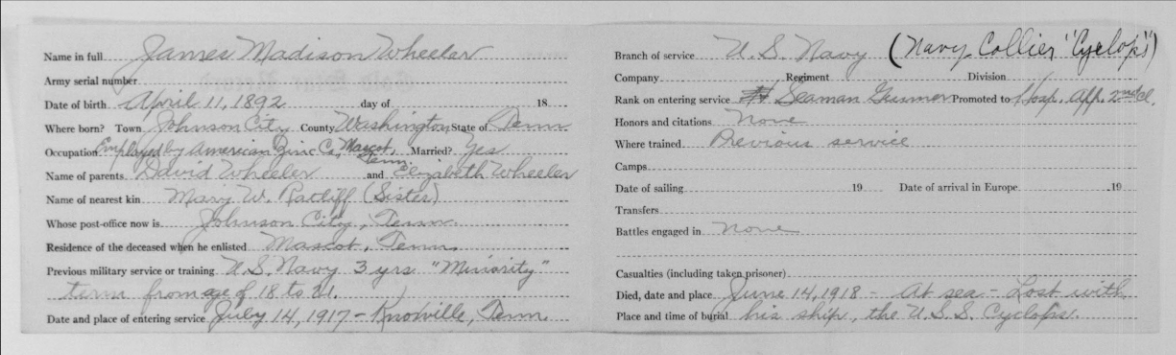 Name in full James Madison Wheeler
Army serial number
Date of birth April 11, 1892 day of 18
Where born? Town Johnson City County Washington State of Tenn.
Occupation Employed by American Zinc Co., Mascot, Tenn. Married? Yes
Name of parents David Wheeler and Elizabeth Wheeler
Name of nearest kin Mary W. Ratliff (Sister)
Whose post-office now is Johnson City, Tenn.
Residence of the deceased when he enlisted Mascot, Tenn.
Previous military service or training U.S. Navy 3 yrs "Minority"
term from age of 18 to 21.
Date and place of entering service July 14, 1917 - Knoxville, Tenn.
Branch of service U.S. Navy (Navy Collier "Cyclops")
Company Regiment Division
Rank on entering service Seaman Gunner Promoted to Hosp. App. 2nd Cl.
Honors and citations None
Where trained Previous service
Camps
Date of sailing 19 Date of arrival in Europe 19
Transfers
Battles engaged in None
Casualties (including taken prisoner)
Died, date and place June 14, 1918 - At sea - Lost with
Place and time of burial his ship, the U.S.S. Cyclops.